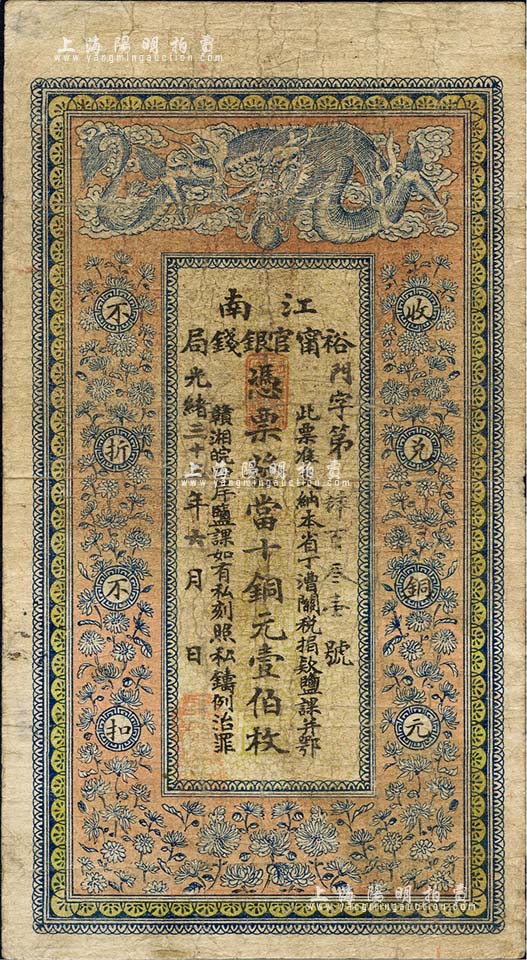 上海陽明拍賣
www.yangmingauction.com
江南
裕甯官銀錢局
收兑銅元
不折不扣
門字第 肆百叁壹號
此票准 納本省丁漕關稅捐款鹽課并鄂
憑票 當十銅元壹伯枚
贛湘皖 岸鹽課如有私刻照私鑄例治罪
光緒三十 年六月 日
上海陽明拍賣
www.yangmingauction.com
上海陽明拍賣
www.yangmingauction.com